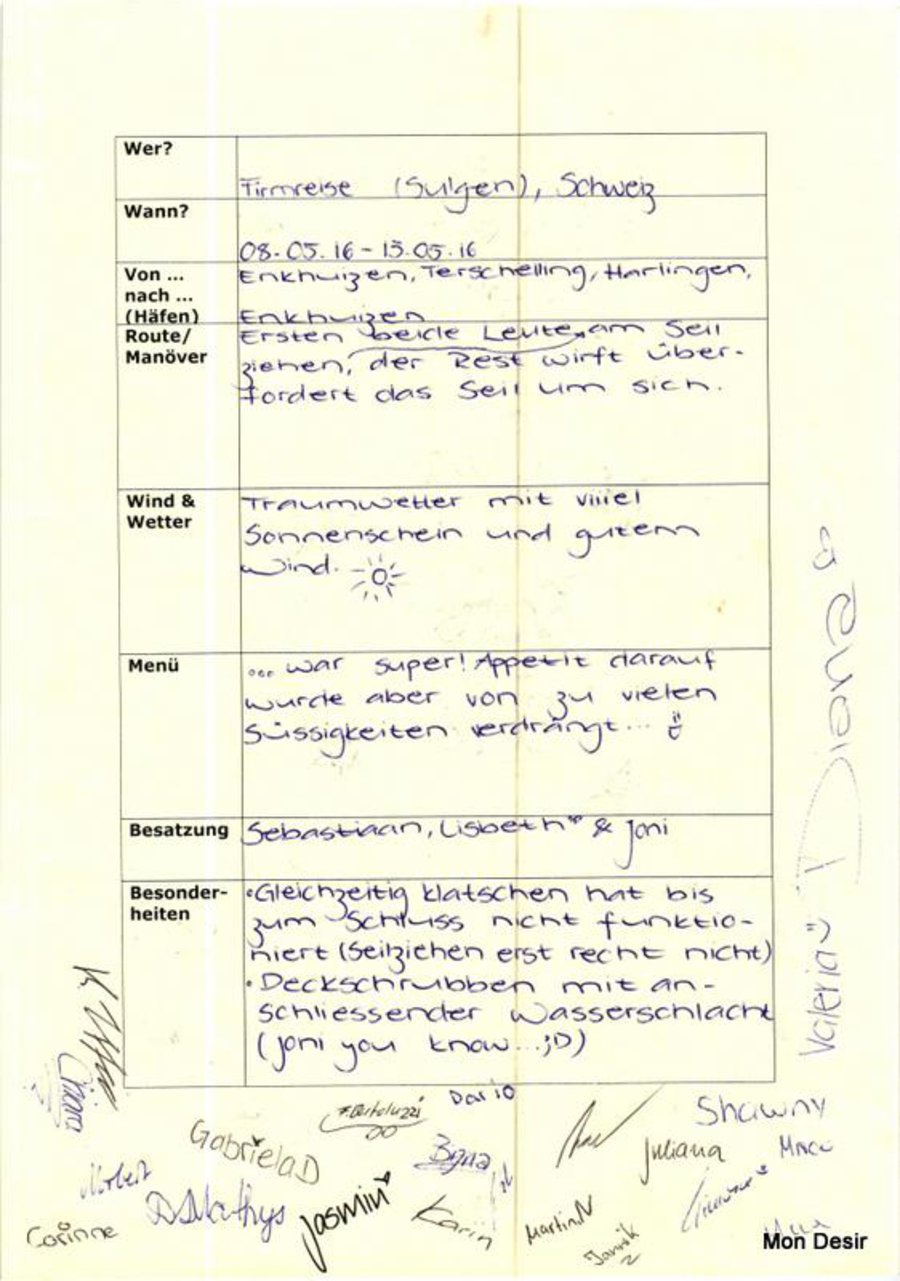 Wer?
Firmreise (Sulgen), Schweiz
Wann?
08.05.16 - 13.05.16
Von ...
nach ...
(Häfen)
Enkhuizen, Terschelling, Harlingen,
Enkhuizen
Route/
Manöver
Ersten beide Leute am Seil
ziehen, der Rest wirft über-
fordert das Seil um sich.
Wind &
Wetter
Traumwetter mit viiiel
Sonnenschein und gutem
Wind.
Menü
... war super! Appetit darauf
wurde aber von zu vielen
Süssigkeiten verdrängt...
Besatzung
Sebastiaan, Lisbeth & Joni
Besonder-
heiten
• Gleichzeitig klatschen hat bis
zum Schluss nicht funktio-
niert (Seilziehen erst recht nicht)
• Deckschrubben mit an-
schliessender Wasserschlacht
(Joni you know...;D)
Diona
Valeria
Chiara
Dario
F. Bertoluzzi
Shawny
Gabriela D
Bigna
Juliana
Norbert
D. Mathys
Jasmin
Karin
Martin N
Jannik
Corinne
Mon Desir